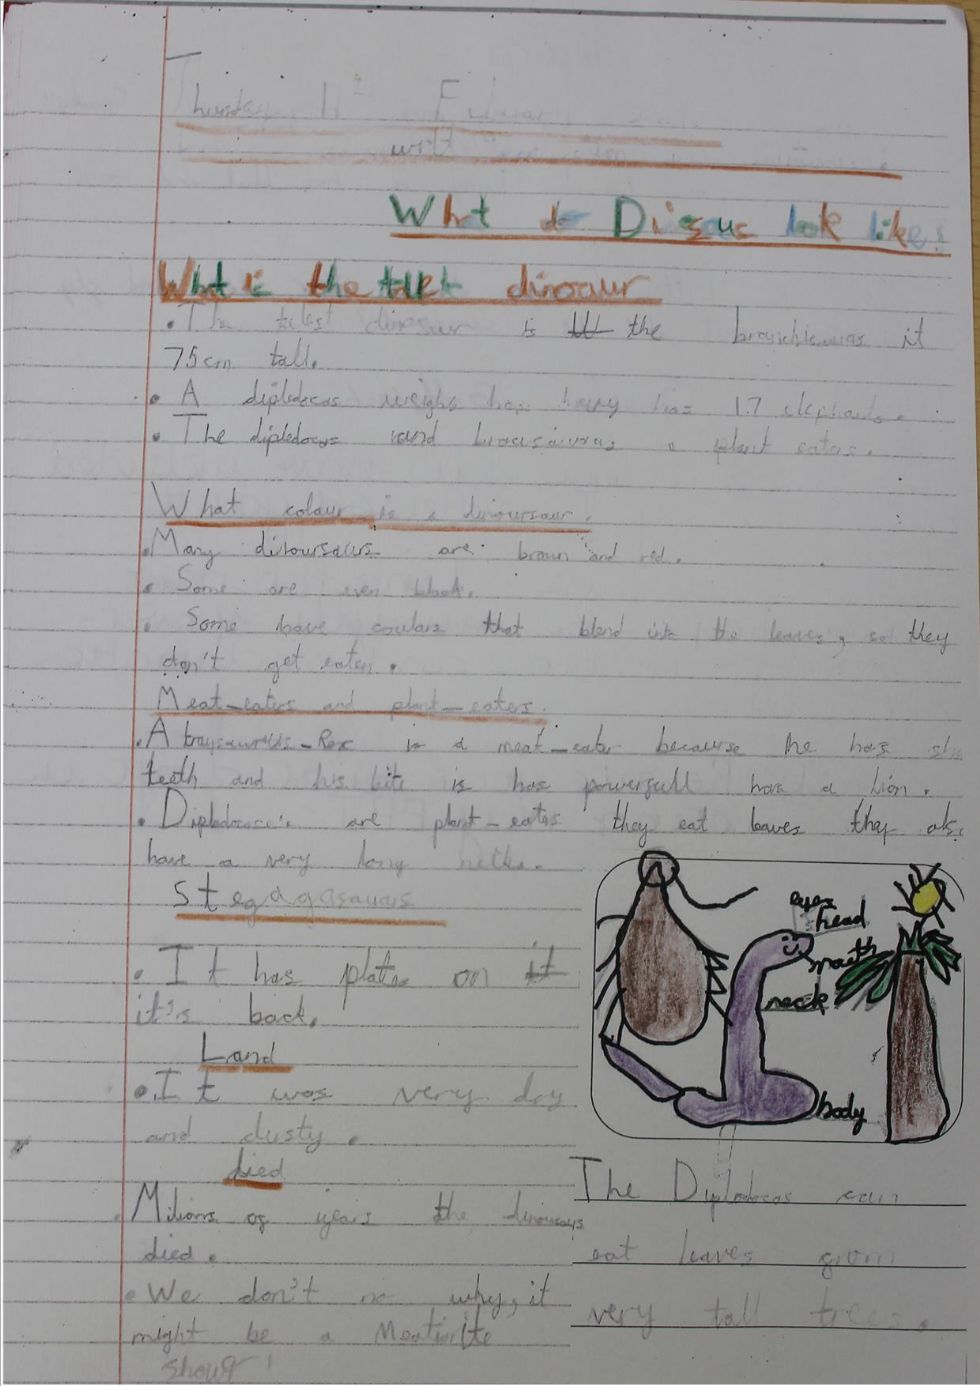 Thursday 11th February
writ
What do Disauc look like?
What is the tallest dinosaur
• The talest dinosaur is the it
75cm tall.
• A dipledocas weighs has hevy has 17 elephants.
• The dipledocus and a plant eaters.
What colour is a dinoursaur.
• Many dinoursaurs are brown and red.
• Some are even black.
• Some have coulars that blend into the leaves, so they
don't get eaten.
Meat-eaters and plant-eaters.
• A -Rex is a meat-eater because he has
teeth and his bite is has powerfull has a lion.
• are plant-eaters they eat leaves they
have a very long
Stegagasauas
• It has plates on it
it's back.
Land
• It was very dry
and dusty.
Died
Milions of years the
died.
• We don't no why, it
might be a
eyes
head
mouth
neck
body
The Dipledocas can
eat leaves grom
very tall trees.